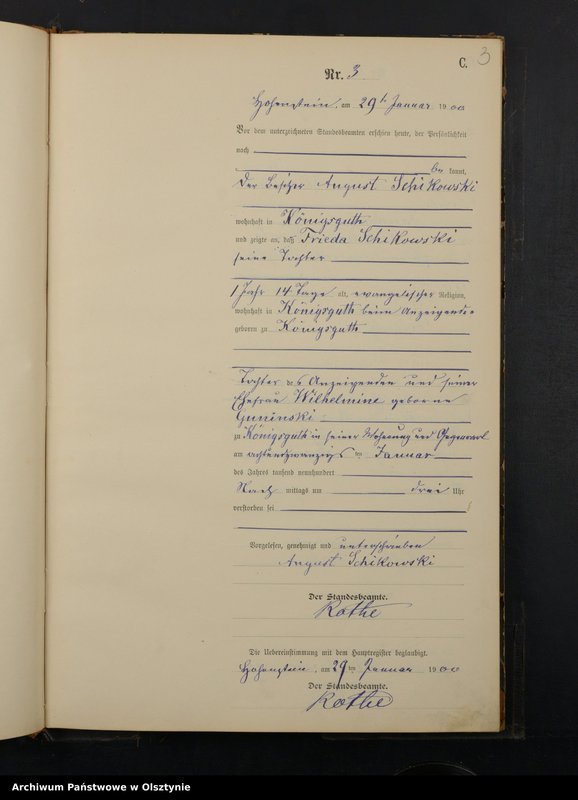 C.
3
Nr. 3
Hohenstein, am 29ten Januar 1900
Vor dem unterzeichneten Standesbeamten erschien heute, der Persönlichkeit
nach
be kannt,
der Besitzer August Schikowski
wohnhaft in Königsguth
und zeigte an, daß Frieda Schikowski
seine Tochter
1 Jahr 14 Tage alt, evangelischer Religion,
wohnhaft in Königsguth beim Anzeigenden
geboren zu Königsguth
Tochter des Anzeigenden und seiner
Ehefrau Wilhelmine geborne
zu Königsguth in seiner Wohnung und Gegenwart
am achtundzwanzigsten Januar
des Jahres tausend neunhundert
Nach mittags um drei Uhr
verstorben sei
Vorgelesen, genehmigt und unterschrieben
August Schikowski
Der Standesbeamte.
Rothe
Die Uebereinstimmung mit dem Hauptregister beglaubigt.
Hohenstein, am 29ten Januar 1900
Der Standesbeamte.
Rothe
Archiwum Państwowe w Olsztynie